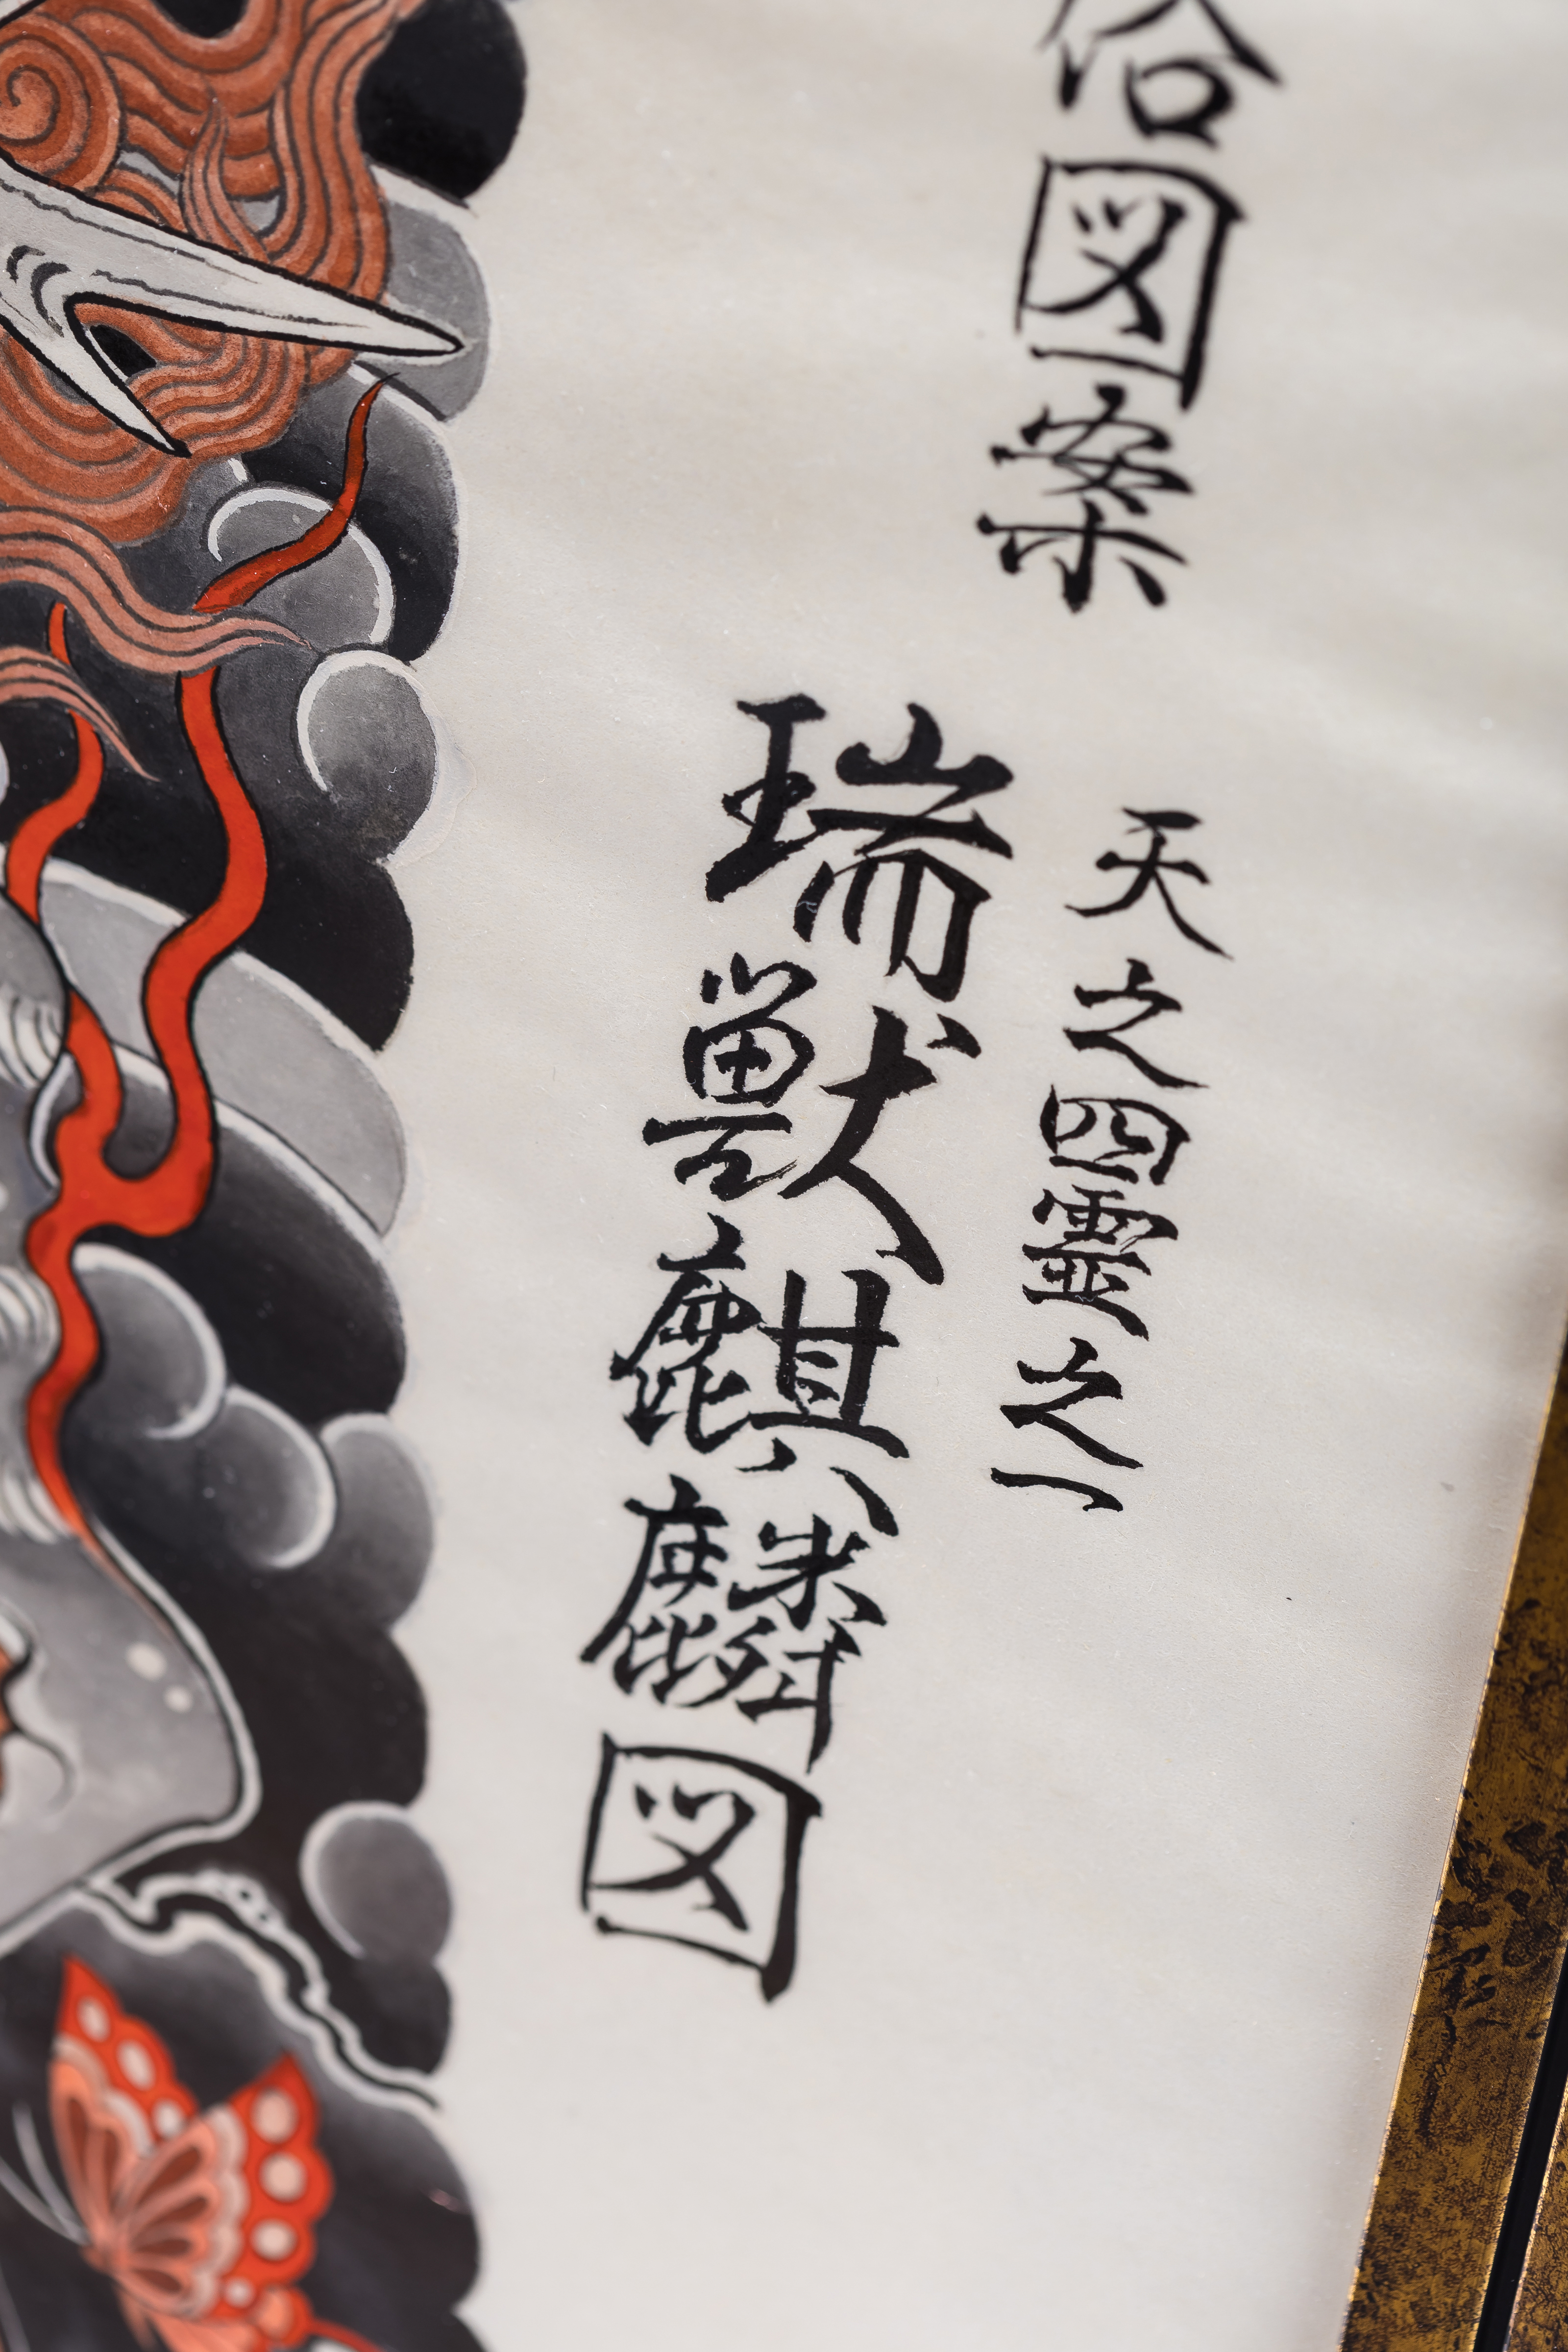 俗図案
天之四霊之一
瑞獣麒麟図